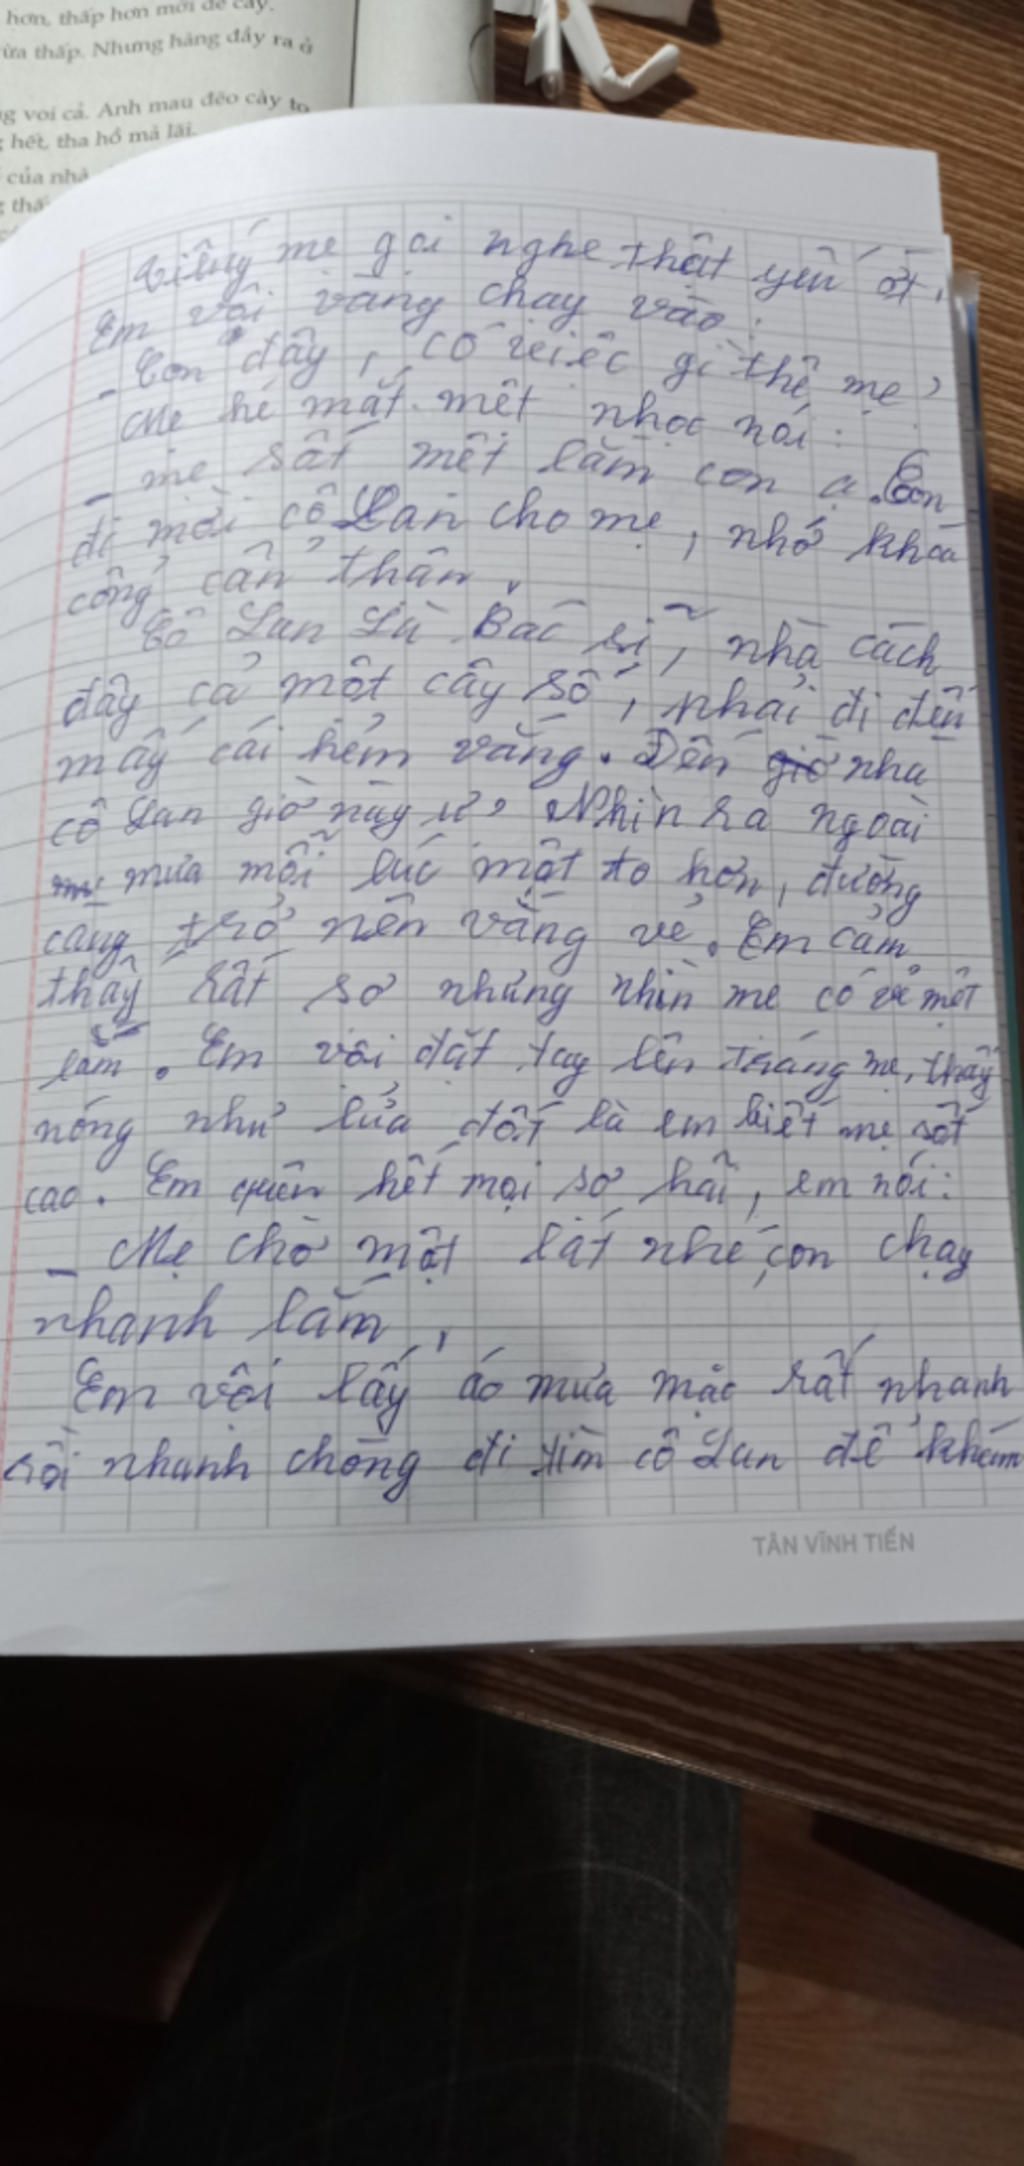 hơn, thấp hơn mới dễ cày.
vừa thấp. Nhưng hàng đầy ra ở
voi cả. Anh mau đẽo cày to
hết, tha hồ mà lãi.
của nhà
Tiếng mẹ gọi nghe thật yếu ớt,
Em vội vàng chạy vào:
- Con đây, có việc gì thế mẹ?
Mẹ hé mắt mệt nhọc nói:
- mẹ sất mệt lắm con ạ. Con
đi mời cô Lan cho mẹ, nhớ khóa
cổng cẩn thận.
Cô Lan Là Bác sĩ, nhà cách
đây cả một cây số, phải đi đến
mấy cái hẻm vắng. Đến giờ nhà
cô Lan giờ này ư? Nhìn ra ngoài
mưa mỗi lúc một to hơn, đường
càng trở nên vắng vẻ. Em cảm
thấy rất sợ nhưng nhìn mẹ có vẻ mệt
lắm. Em vội đặt tay lên tráng mẹ, thấy
nóng như lửa đốt là em biết mẹ sốt
cao. Em quên hết mọi sợ hãi, em nói:
- Mẹ chờ một lát nhé, con chạy
nhanh lắm,
Em vội lấy áo mưa mặc rất nhanh
rồi nhanh chóng đi tìm cô Lan để khám
TÂN VĨNH TIẾN